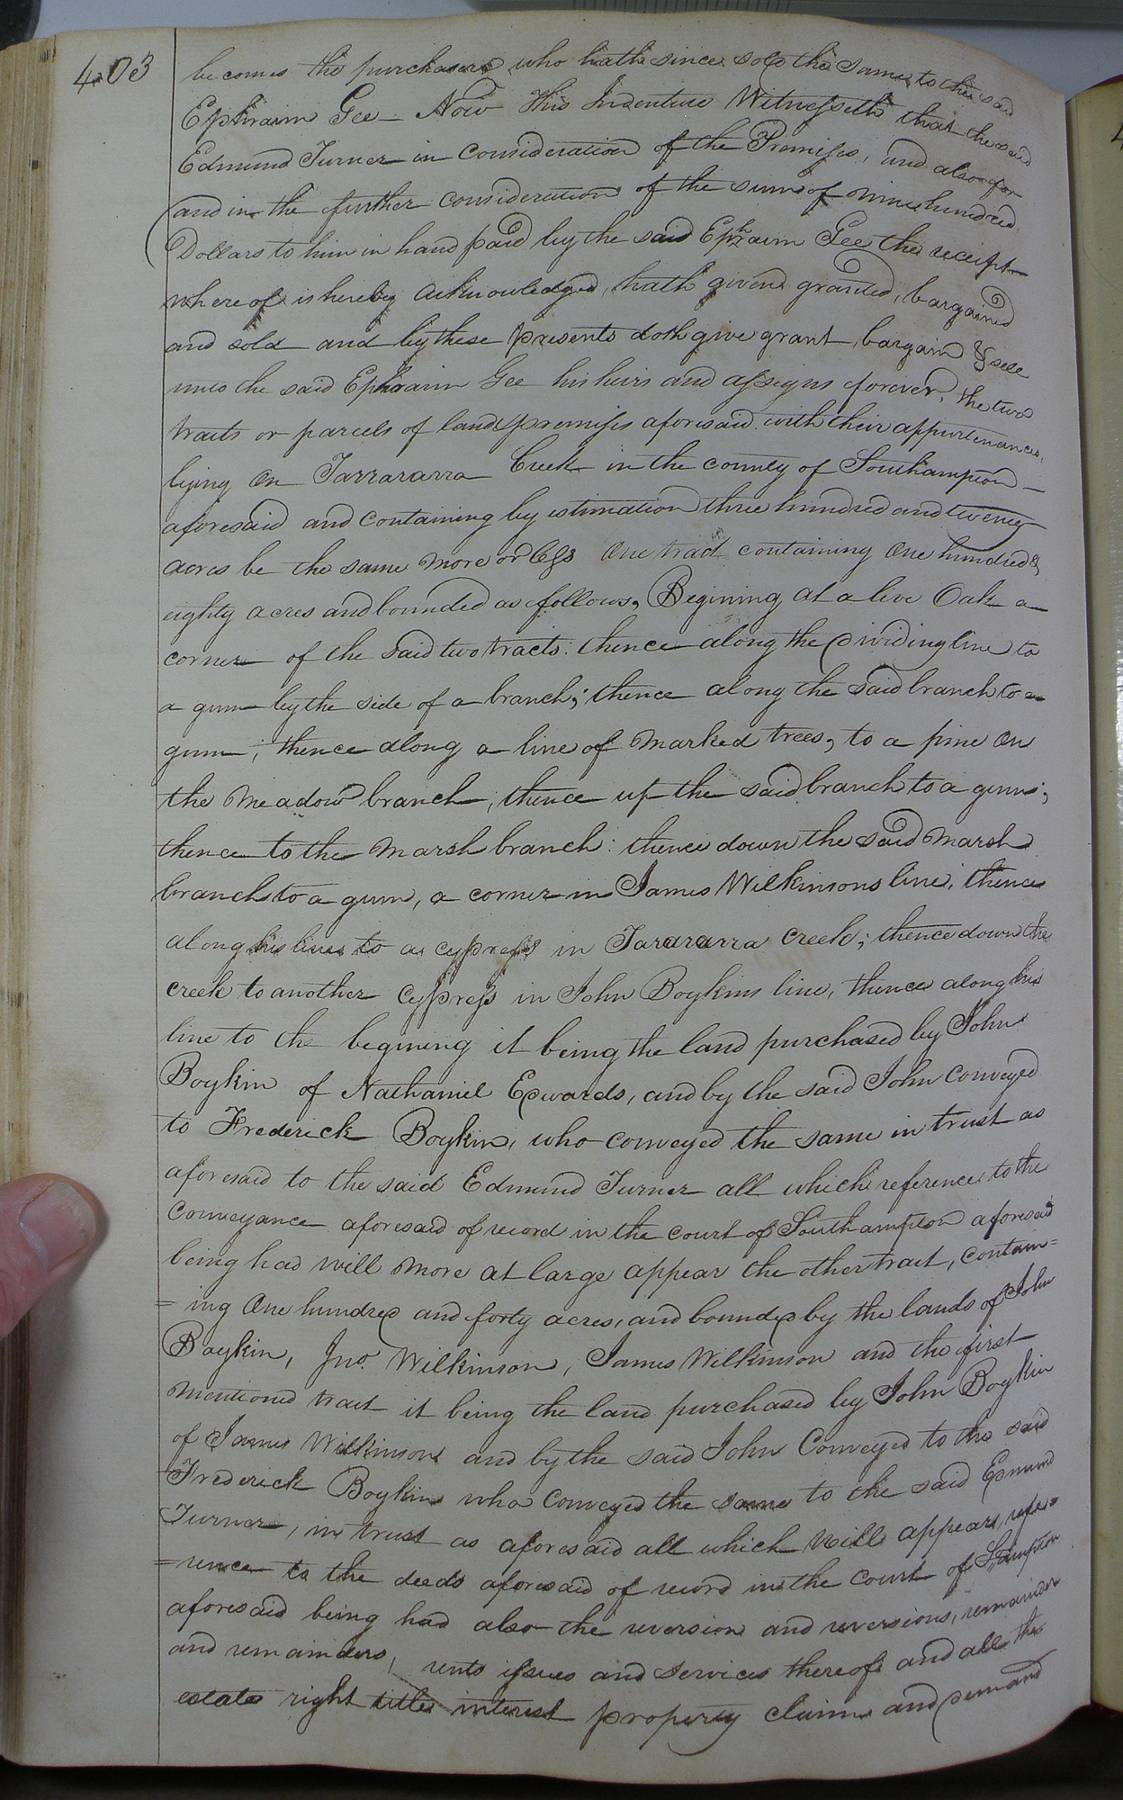 403
becomes the purchaser who hath since sold the same to the said
Ephraim Gee - Now this Indenture Witnesseth that the said
Edmund Turner in consideration of the Premises, and also for
and in the further consideration of the sum of nine hundred
Dollars to him in hand paid by the said Ephraim Gee the receipt
whereof is hereby acknowledged, hath given granted, bargained
and sold and by these presents doth give grant, bargain & sell
unto the said Ephraim Gee his heirs and assigns forever, the two
tracts or parcels of land & premises aforesaid with their appurtenances,
lying on Tarrararra Creek in the county of Southampton -
aforesaid and containing by estimation three hundred and twenty
acres be the same more or less One tract containing One hundred &
eighty acres and bounded as follows, Begining at a live Oak a
corner of the said two tracts: thence along the dividing line to
a gum by the side of a branch; thence along the said branch to a
gum; thence along a line of marked trees, to a pine on
the Meadow branch; thence up the said branch to a gum;
thence to the Marsh branch: thence down the said Marsh
branch to a gum, a corner in James Wilkinsons line; thence
along his lines to a cypress in Tarararra creek; thence down the
creek to another cypress in John Boykins line, thence along his
line to the begining it being the land purchased by John
Boykin of Nathaniel Edwards, and by the said John conveyed
to Frederick Boykin, who conveyed the same in trust as
aforesaid to the said Edmund Turner all which reference to the
Conveyance aforesaid of record in the court of Southampton aforesaid
being had will more at large appear the other tract, contain=
=ing One hundred and forty acres, and bounded by the lands of John
Boykin, Jno. Wilkinson, James Wilkinson and the first
mentioned tract it being the land purchased by John Boykin
of James Wilkinson and by the said John Conveyed to the said
Frederick Boykin who conveyed the same to the said Edmund
Turner, in trust as aforesaid all which will appear, refe=
=rence to the deeds aforesaid of record in the court of S.hampton
aforesaid being had also the reversion and reversions, remainder
and remainders, rents issues and services thereof and all the
estate right title interest property claim and demand